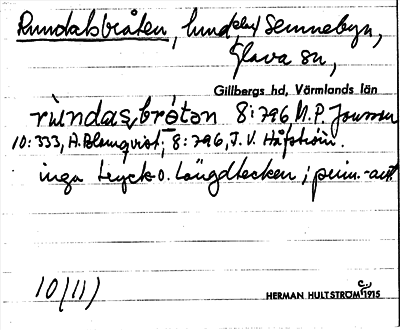 Rundalsbråten, hund(plur) Sennebyn,
Glava sn,
Gillbergs hd, Värmlands län
rùndasbrótən 8:796 N.P. Jonsson
10:333, A. Blomqvist; 8:796, J.V. Håfström.
inga tryck- o. längdtecken; prim.-ant
10/11)
HERMAN HULTSTRÖM 1915